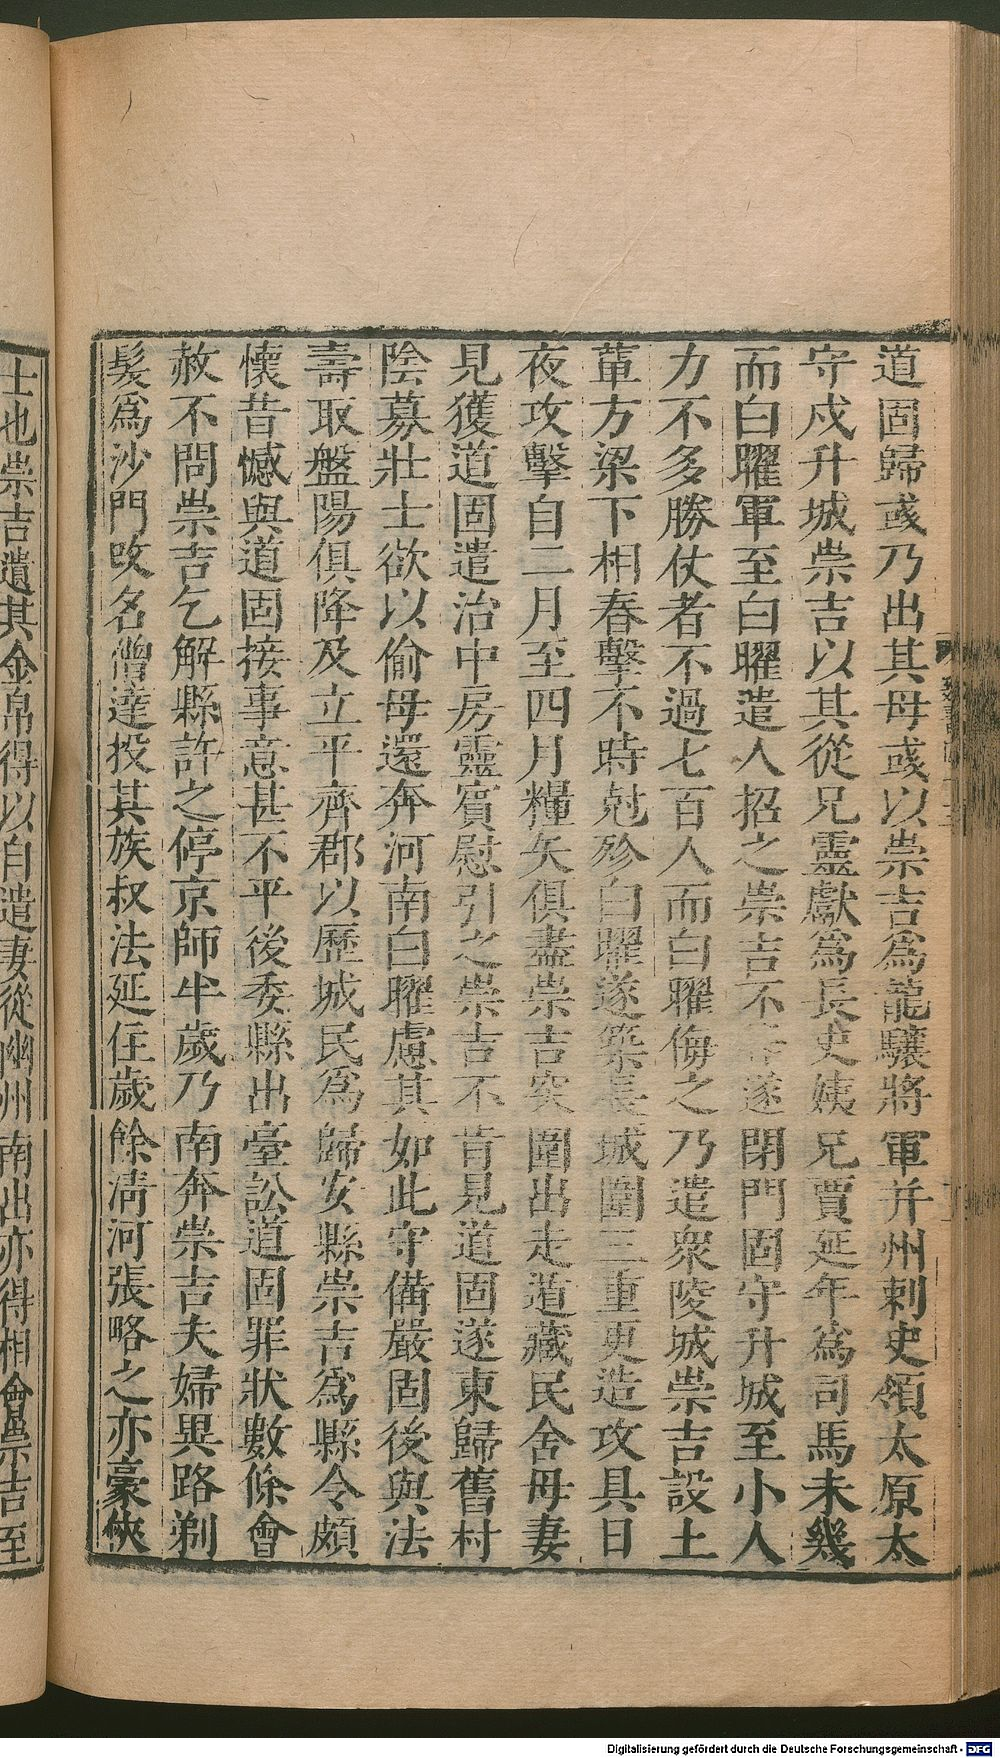 道固歸彧乃出其母彧以崇吉爲龍驤將軍并州剌史領太原太
守戍升城崇吉以其從兄靈獻爲長史姨兄賈延年爲司馬未幾
而白曜軍至白曜遣人招之崇吉不遂閉門固守升城至小人
力不多勝仗者不過七百人而白曜侮之乃遣衆陵城崇吉設土
葷方梁下相舂擊不時尅殄白曜遂築長城圍三重更造攻具日
夜攻擊自二月至四月糧矢俱盡崇吉突圍出走遁藏民舍母妻
見獲道固遣治中房靈賓慰引之崇吉不肯見道固遂東歸舊村
陰募壯士欲以偷母還奔河南白曜慮其如此守備嚴固後與法
壽取盤陽俱降及立平齊郡以歷城民爲歸安縣崇吉爲縣令頗
懷昔憾與道固接事意甚不平後委縣出臺訟道固罪狀數條會
赦不問崇吉乞解縣許之停京師半歲乃南奔崇吉夫婦異路剃
髮爲沙門改名僧達投其族叔法延住歲餘淸河張略之亦豪俠
士也崇吉遺其金帛得以自遣妻從幽州南出亦得相會崇吉至
Digitalisierung gefördert durch die Deutsche Forschungsgemeinschaft - DFG